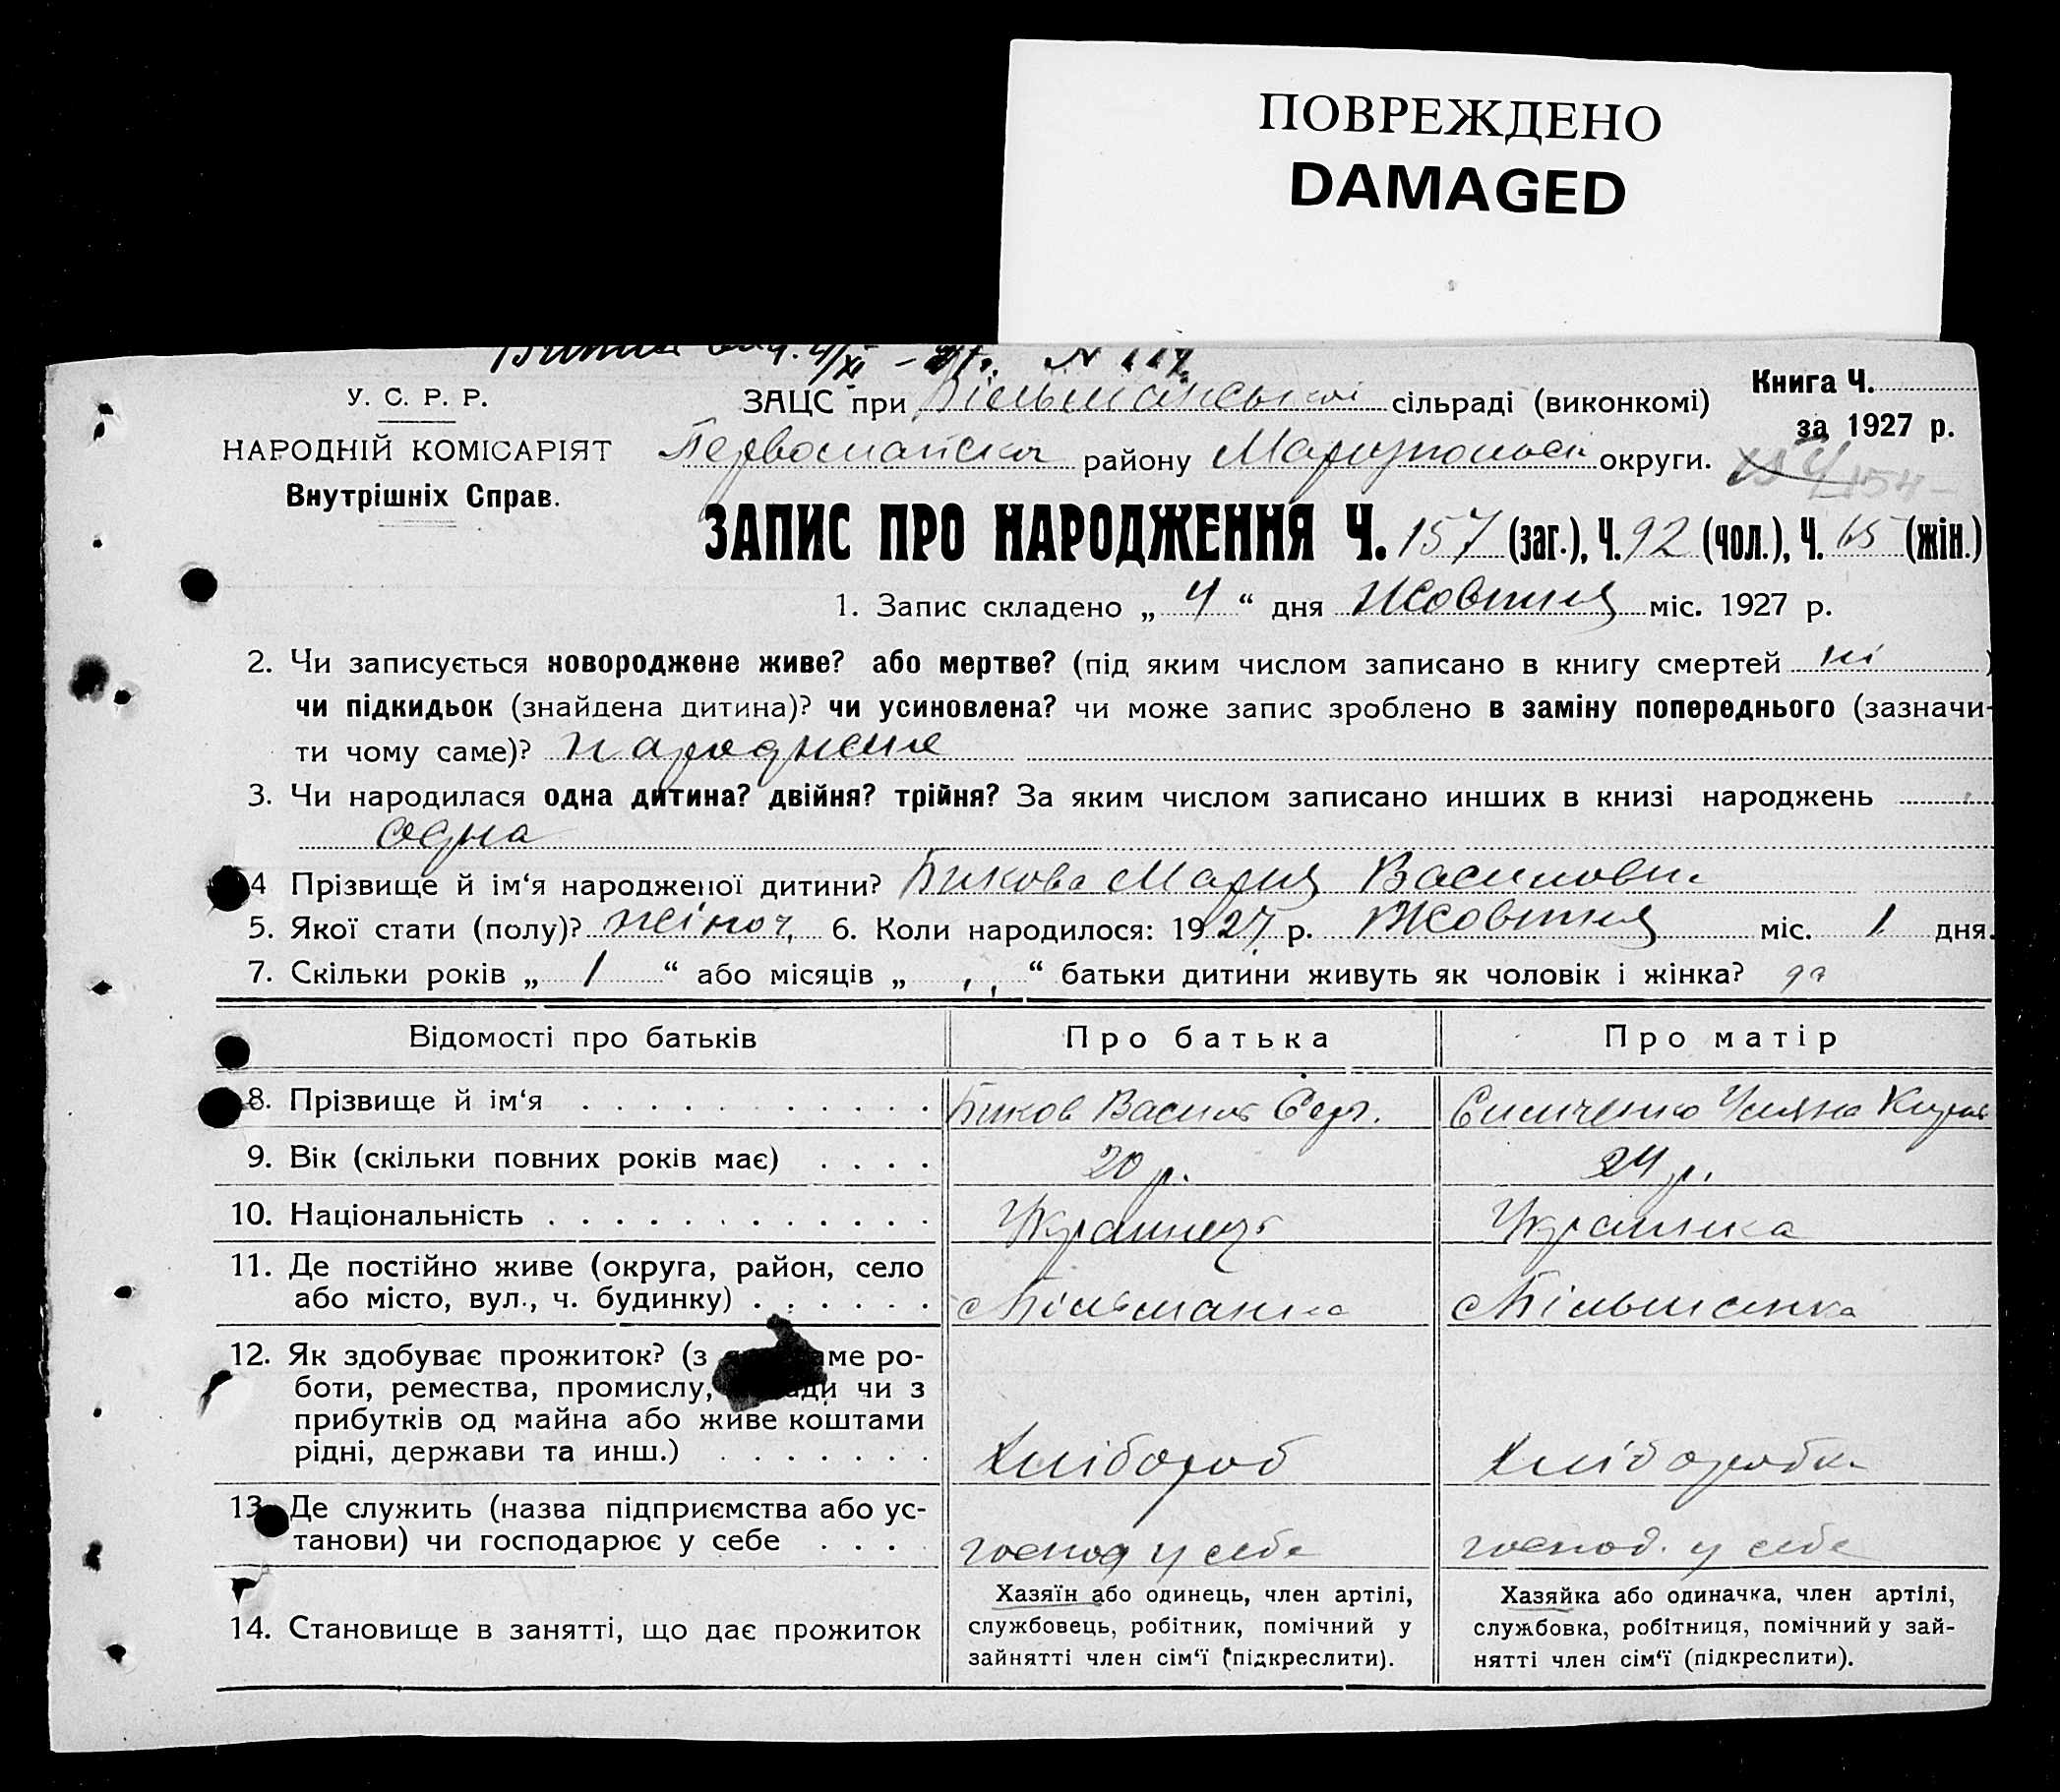 ПОВРЕЖДЕНО
DAMAGED
№ 117
У. С. Р. Р.
НАРОДНІЙ КОМІСАРІЯТ
Внутрішніх Справ.
ЗАЦС при Більманській сільраді (виконкомі)
Книга Ч.
за 1927 р.
Первомайська району Маріупольськ округи.
154 154-
ЗАПИС ПРО НАРОДЖЕННЯ Ч. 157 (заг.), Ч. 92 (чол.), Ч. 65 (жін.)
1. Запис складено „ 4 “ дня Жовтня міс. 1927 р.
2. Чи записується новороджене живе? або мертве? (під яким числом записано в книгу смертей ні )
чи підкидьок (знайдена дитина)? чи усиновлена? чи може запис зроблено в заміну попереднього (зазначи-
ти чому саме)? народжене
3. Чи народилася одна дитина? двійня? трійня? За яким числом записано инших в книзі народжень
одна
4 Прізвище й ім‘я народженої дитини? Бикова Мария Василовн.
5. Якої стати (полу)? жіноч. 6. Коли народилося: 1927 р. Жовтня міс. 1 дня.
7. Скільки років „ 1 “ або місяців „ “ батьки дитини живуть як чоловік і жінка? да
Відомості про батьків Про батька Про матір
8. Прізвище й ім‘я Биков Василь Фед. Улляна
9. Вік (скільки повних років має) 20 р. 24 р.
10. Національність Украинець Украинка
11. Де постійно живе (округа, район, село
або місто, вул., ч. будинку) с Більманка с Більманка
12. Як здобуває прожиток? (з ме ро-
боти, ремества, промислу, ди чи з
прибутків од майна або живе коштами
рідні, держави та инш.) Хлібороб Хліборобка
13. Де служить (назва підприємства або ус-
танови) чи господарює у себе господ у себе господ. у себе
14. Становище в занятті, що дає прожиток
Хазяїн або одинець, член артілі,
службовець, робітник, помічний у
зайнятті член сім‘ї (підкреслити).
Хазяйка або одиначка, член артілі,
службовка, робітниця, помічний у зай-
нятті член сім‘ї (підкреслити).